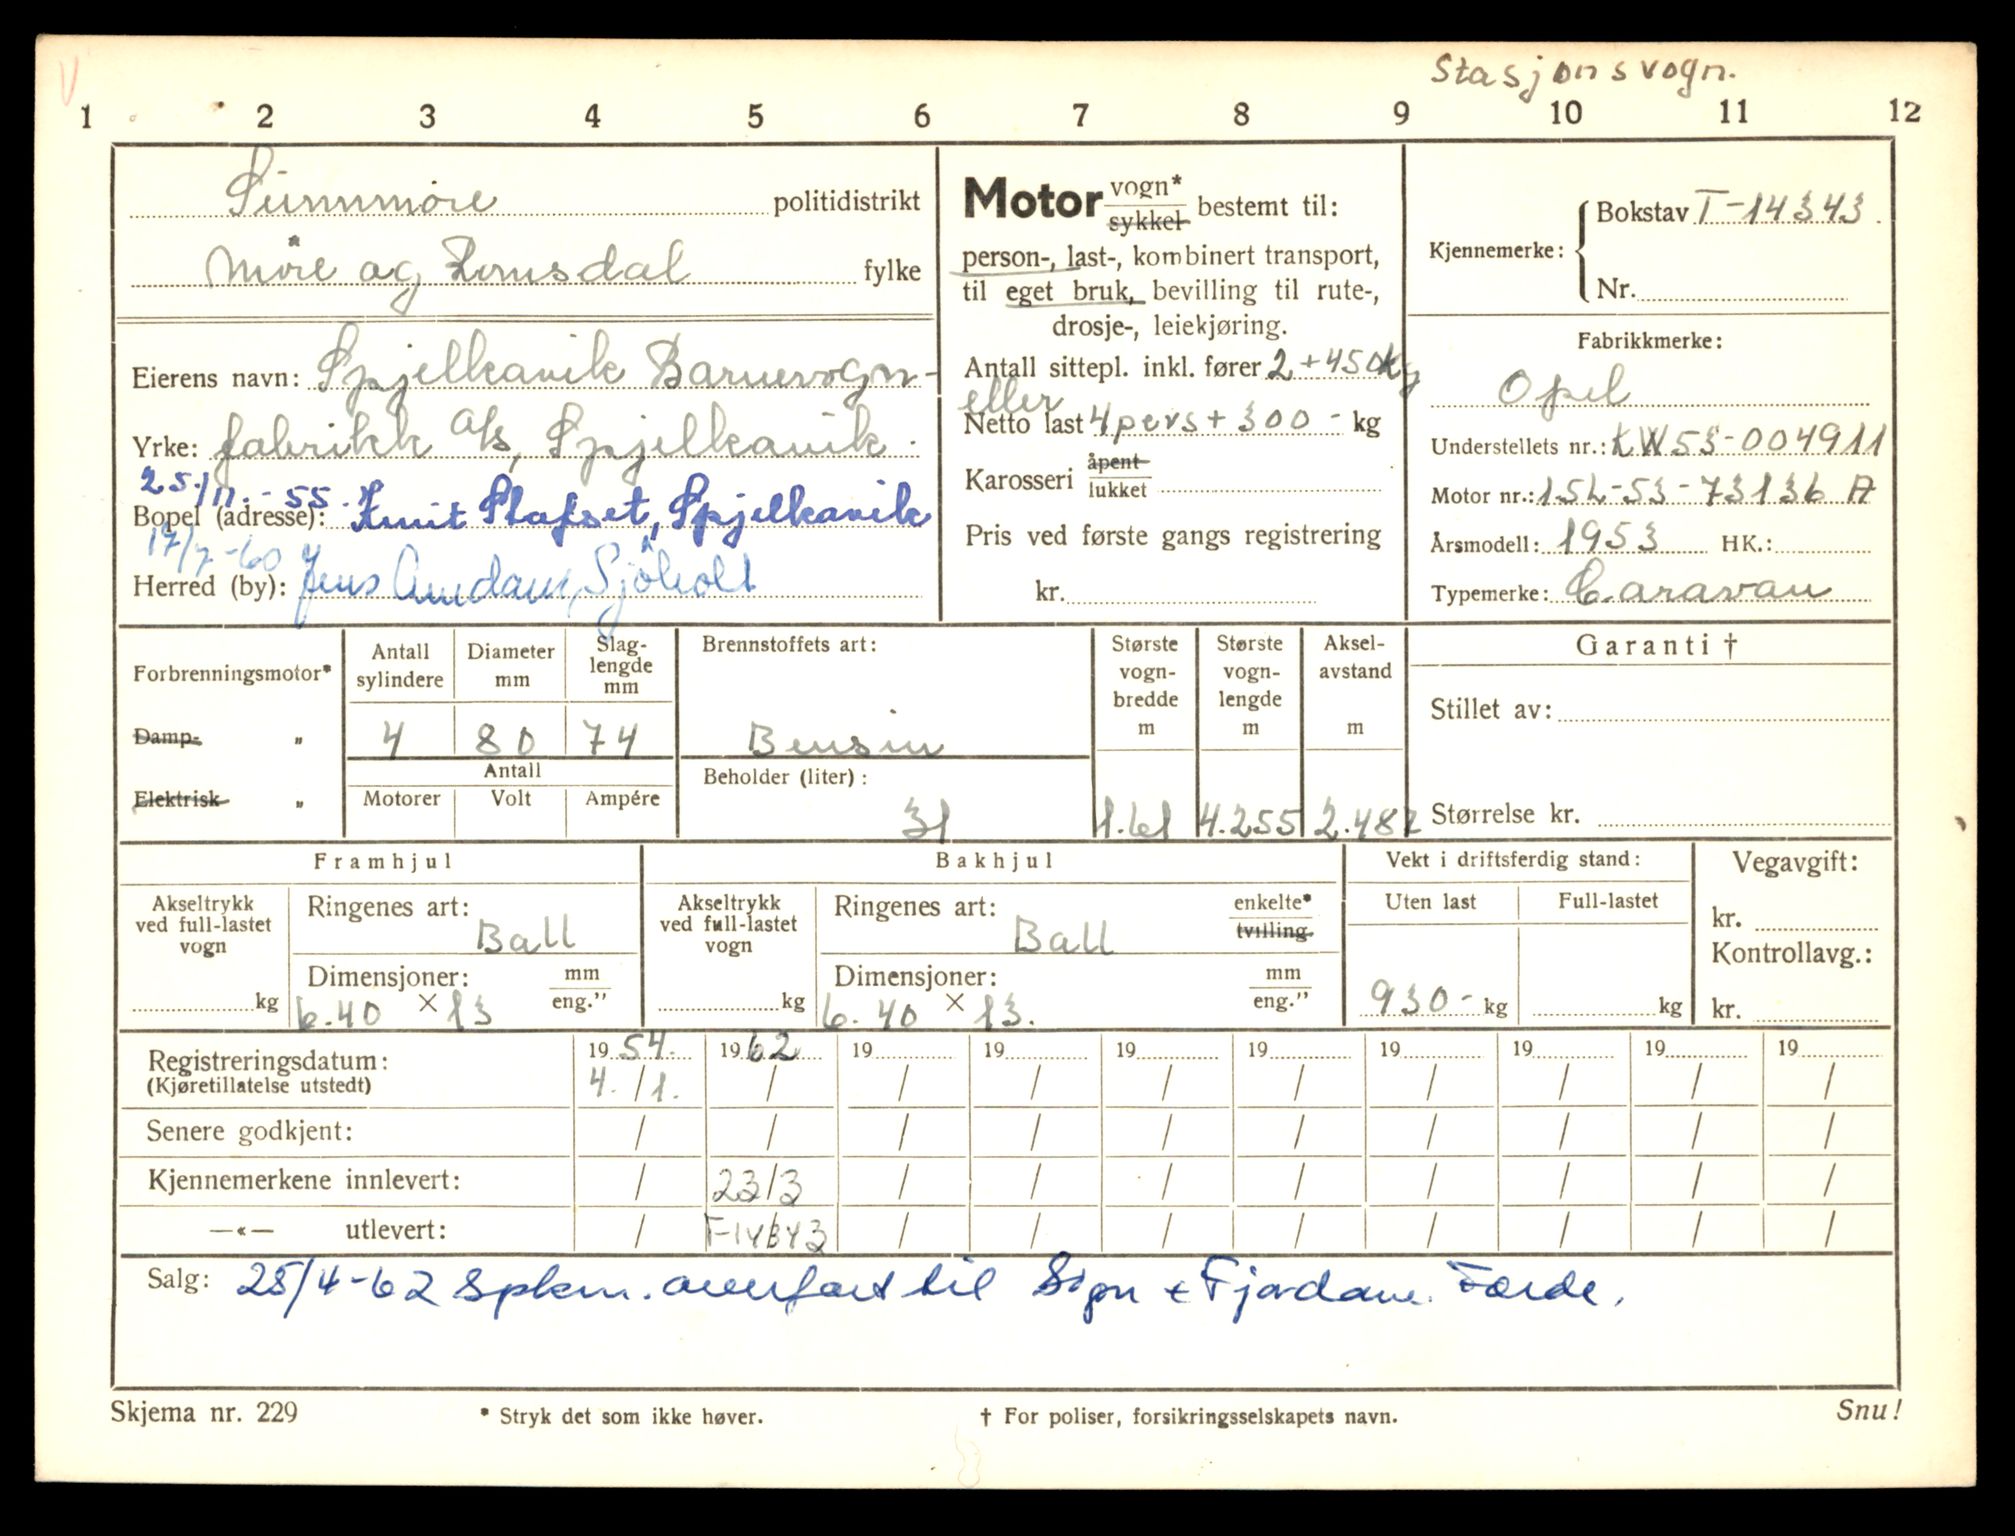 V
Stasjonsvogn.
1 2 3 4 5 6 7 8 9 10 11 12
Sunnmøre politidistrikt
Møre og Romsdal fylke
Eierens navn: Spjelkavik Barnevogn-
Yrke: fabrikk A/S, Spjelkavik.
25./11.-55. Knut Slafset, Spjelkavik
Bopel (adresse):
17/7-60 Jens Amdam, Sjøholt
Herred (by):
Motor vogn*
sykkel bestemt til:
person-, last-, kombinert transport,
til eget bruk, bevilling til rute-,
drosje-, leiekjøring.
Antall sittepl. inkl. fører 2 + 450 kg
eller
Netto last 4 pers + 300 - kg
Karosseri åpent
lukket
Pris ved første gangs registrering
kr.
Kjennemerke: Bokstav T-14343.
Nr.
Fabrikkmerke:
Opel
Understellets nr.: LW53-004911
Motor nr.: 15L-53-73136 A
Årsmodell: 1953 HK.:
Typemerke: Caravan
Forbrenningsmotor*
Damp- "
Elektrisk "
Antall sylindere Diameter mm Slag-lengde mm
4 80 74
Antall
Motorer Volt Ampére
Brennstoffets art:
Bensin
Beholder (liter):
31
Største vogn-bredde m Største vogn-lengde m Aksel-avstand m
1.61 4.255 2.487
Garanti †
Stillet av:
Størrelse kr.
Framhjul
Akseltrykk ved full-lastet vogn
kg
Ringenes art:
Ball
Dimensjoner: mm
eng."
6.40 × 13
Bakhjul
Akseltrykk ved full-lastet vogn
kg
Ringenes art: enkelte*
tvilling
Ball
Dimensjoner: mm
eng."
6.40 × 13.
Vekt i driftsferdig stand:
Uten last Full-lastet
930- kg kg
Vegavgift:
kr.
Kontrollavg.:
kr.
Registreringsdatum: 19 54. 19 62 19 19 19 19 19 19 19 19
(Kjøretillatelse utstedt) 4. / 1. / / / / / / / / /
Senere godkjent: / / / / / / / / / /
Kjennemerkene innlevert: / 23/3 / / / / / / / /
—«— utlevert: / T-14343 / / / / / / / /
Salg: 25/4-62 Spkm. overført til Sogn & Fjordane. Førde.
Skjema nr. 229
* Stryk det som ikke høver.
† For poliser, forsikringsselskapets navn.
Snu!